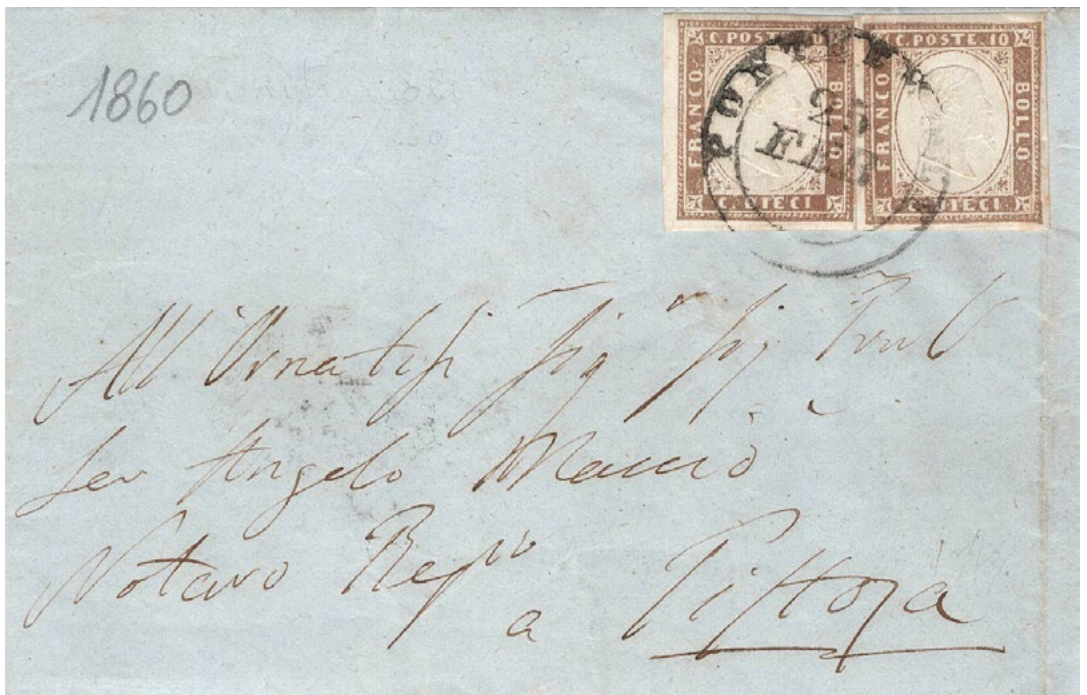 1860
C. POSTE. 10
FRANCO
BOLLO
C. DIECI
C. POSTE. 10
FRANCO
BOLLO
C. DIECI
25
FEB
All Ornatis Sig Sig
Ser Angelo Maccio
Notaro
a Pistoja